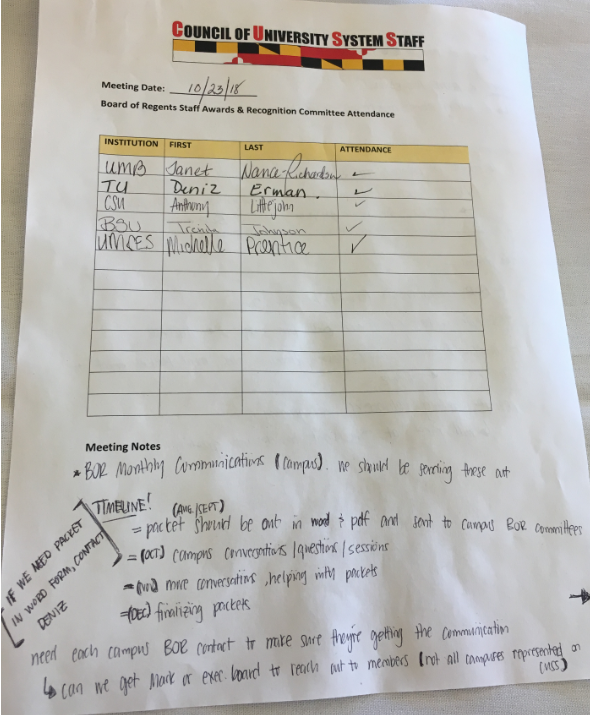 COUNCIL OF UNIVERSITY SYSTEM STAFF
Meeting Date: 10/23/18
Board of Regents Staff Awards & Recognition Committee Attendance
INSTITUTION FIRST LAST ATTENDANCE
UMB Janet Nance-Richardson ✓
TU Deniz Erman. ✓
CSU Anthony Littlejohn ✓
BSU Trenita Johnson ✓
UMCES Michelle Prentice ✓
Meeting Notes
* BOR Monthly Communications (campus). we should be sending these out
TIMELINE! (AUG/SEPT)
= packet should be out in word & pdf and sent to campus BOR committees
= (OCT) campus conversations/questions/sessions
= (NOV) more conversations, helping with packets
= (DEC) finalizing packets
IF WE NEED PACKET
IN WORD FORM, CONTACT
DENIZ
need each campus BOR contact to make sure they're getting the communication
↳ can we get Mark or exec. board to reach out to members (not all campuses represented on
CUSS)